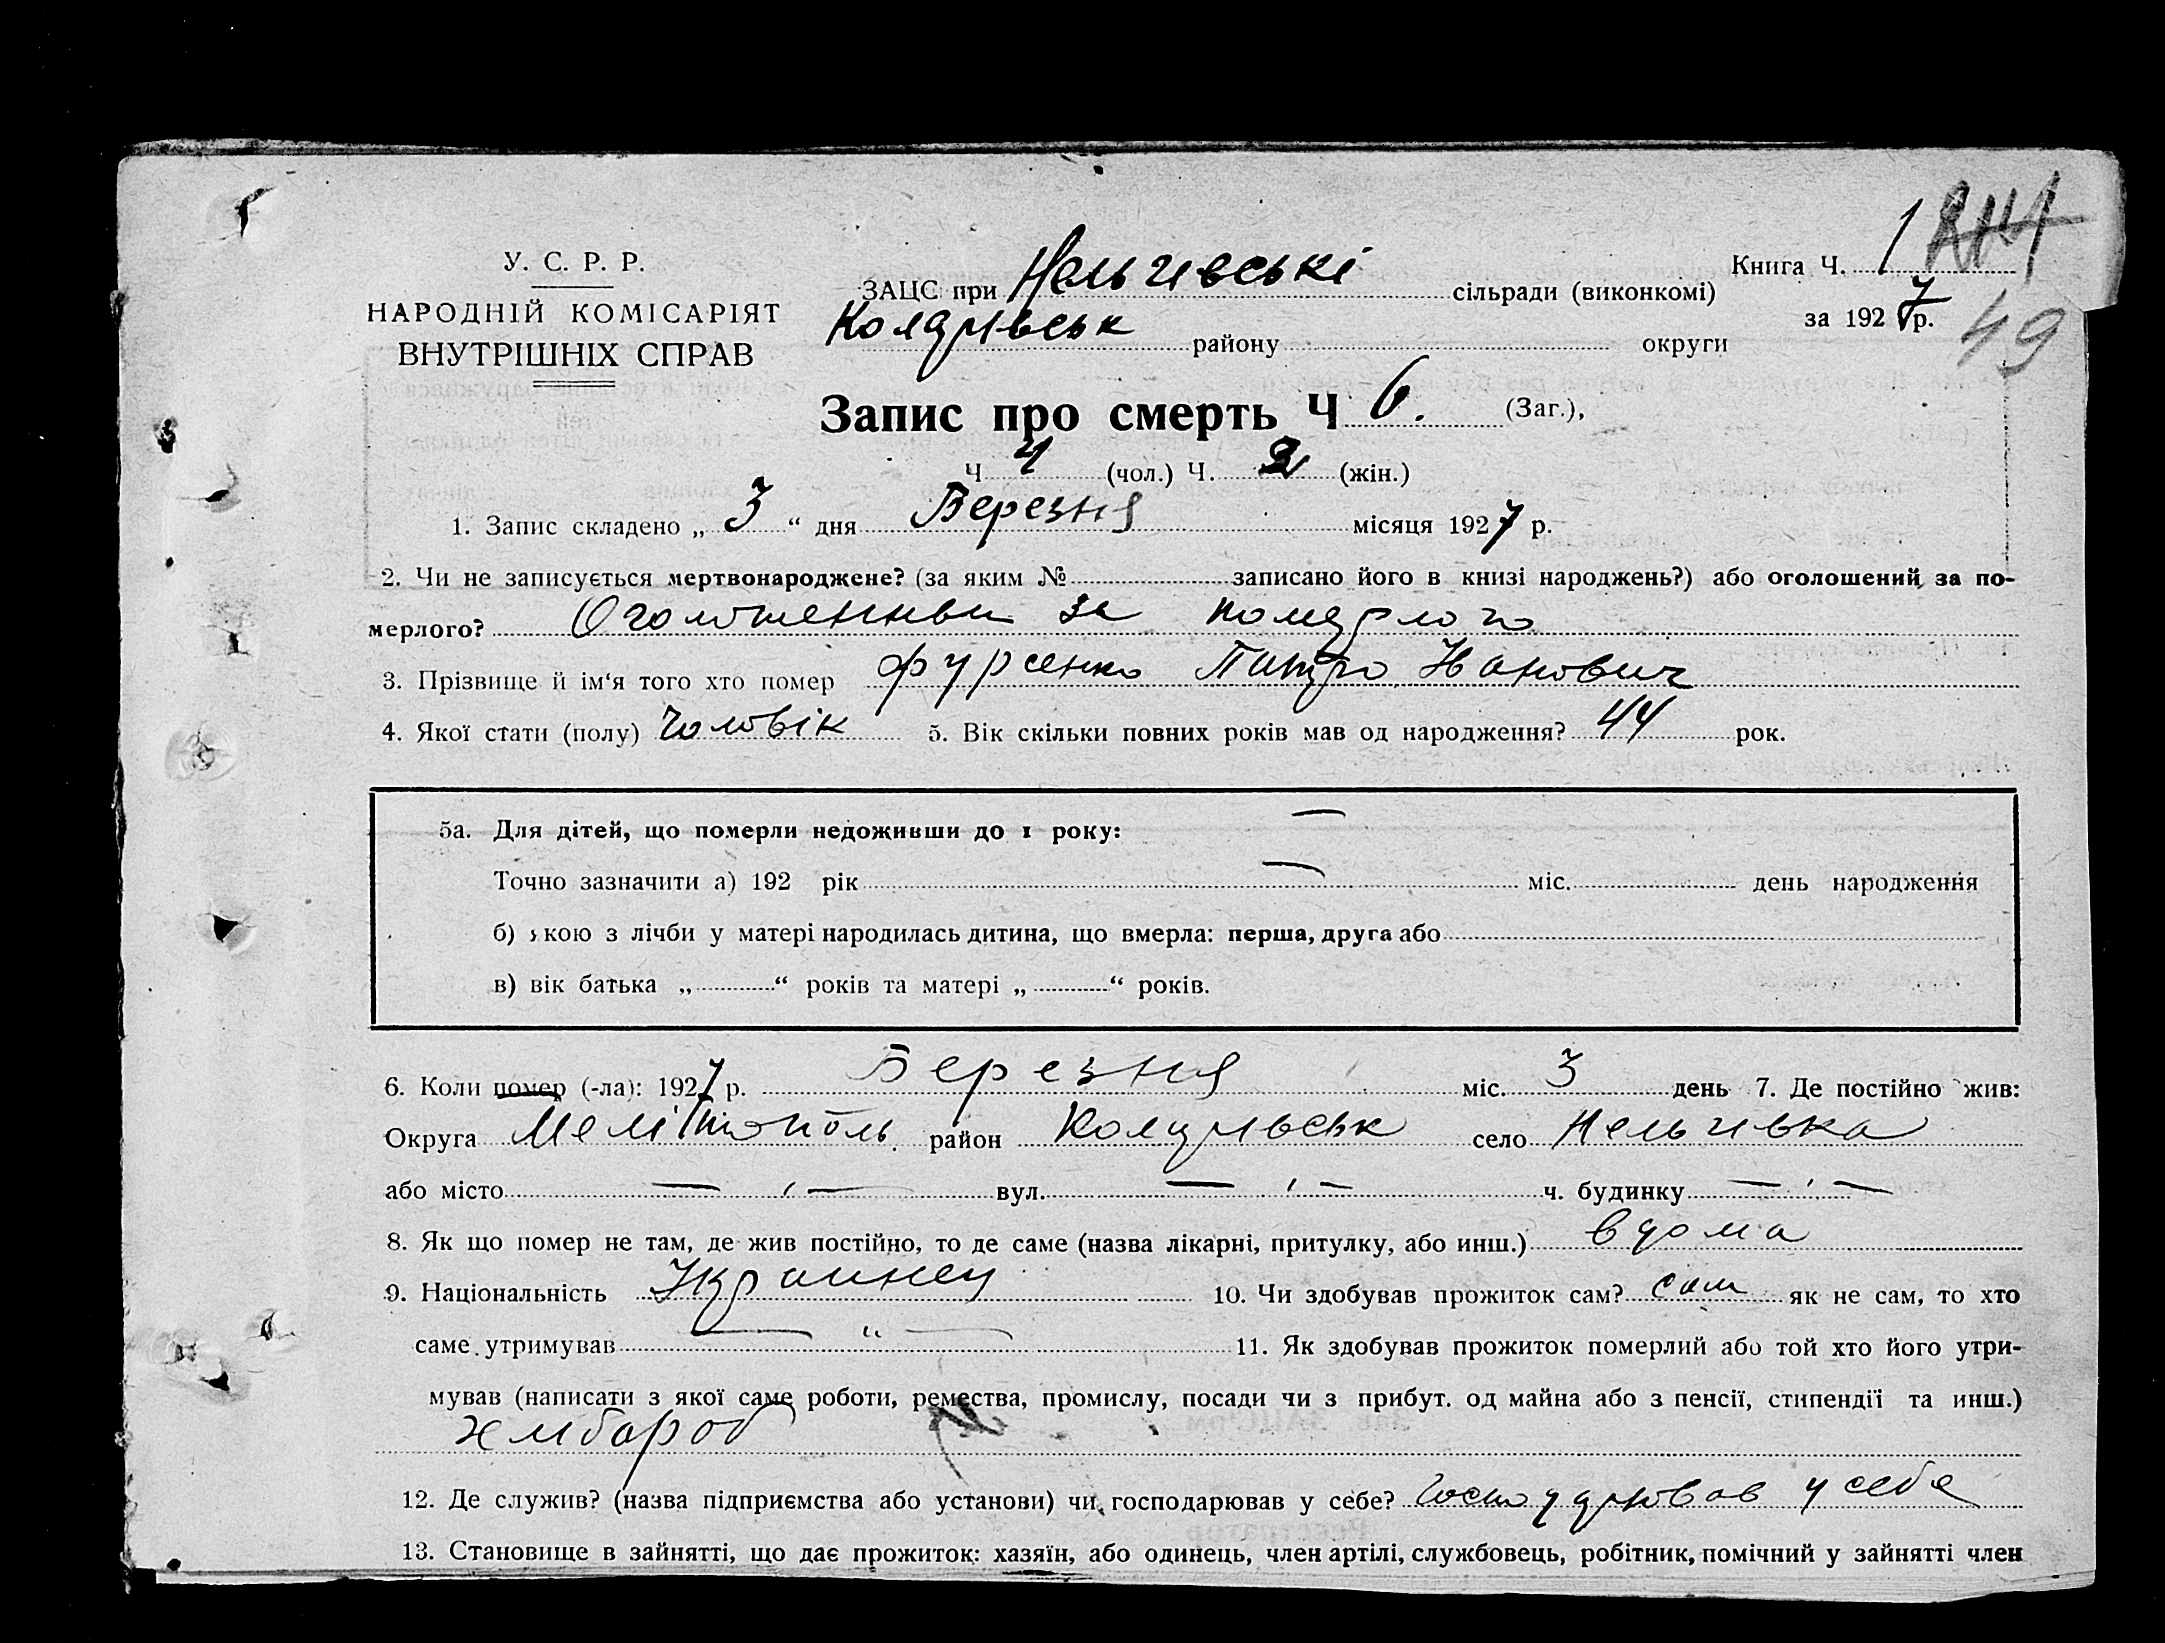 У. С. Р. Р.
НАРОДНІЙ КОМІСАРІЯТ
ВНУТРІШНІХ СПРАВ
ЗАЦС при Нельгивські сільради (виконкомі)
району округи
Книга Ч. 1
за 1927 р.
49
Запис про смерть Ч 6. (Заг.),
Ч 4 (чол.) Ч. 2 (жін.)
1. Запис складено „ 3 “ дня Березня місяця 1927 р.
2. Чи не записується мертвонароджене? (за яким № записано його в книзі народжень?) або оголошений за по-
мерлого? за померлого
3. Прізвище й ім‘я того хто помер Фурсенко Петро Иванович
4. Якої стати (полу) Чоловік 5. Вік скільки повних років мав од народження? 44 рок.
5а. Для дітей, що померли недоживши до 1 року: —
Точно зазначити а) 192 рік — міс. день народження
б) якою з лічби у матері народилась дитина, що вмерла: перша, друга або
в) вік батька „ “ років та матері „ “ років.
6. Коли помер (-ла): 1927 р. Березня міс. 3 день 7. Де постійно жив:
Округа Мелітополь район село Нельгивка
або місто — ‚ — вул. — ‚ — ч. будинку — ‚ —
8. Як що помер не там, де жив постійно, то де саме (назва лікарні, притулку, або инш.) вдома
9. Національність Украинец 10. Чи здобував прожиток сам? сам як не сам, то хто
саме утримував — “ — 11. Як здобував прожиток померлий або той хто його утри-
мував (написати з якої саме роботи, ремества, промислу, посади чи з прибут. од майна або з пенсії, стипендії та инш.)
хлибороб
12. Де служив? (назва підприємства або установи) чи господарював у себе? Господарював у себе
13. Становище в зайнятті, що дає прожиток: хазяїн, або одинець, член артілі, службовець, робітник, помічний у зайнятті член